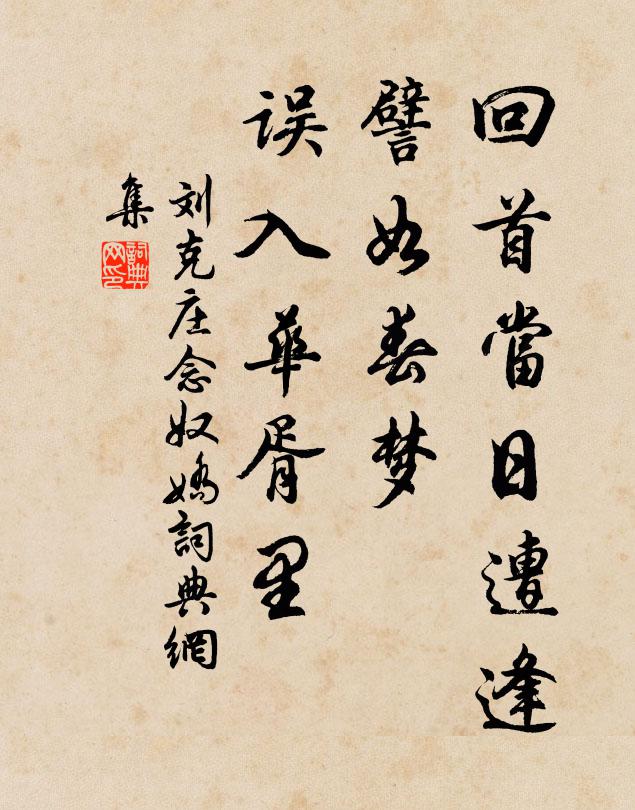 回首當日遭逢
譬如春梦
误入華胥里
刘克庄念奴嬌詞典網
集
詞典网印